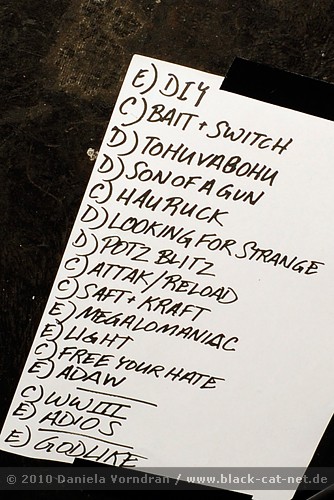 E) DIY
C) BAIT + SWITCH
D) TOHUVABOHU
D) SON OF A GUN
C) HAU RUCK
D) LOOKING FOR STRANGE
D) POTZ BLITZ
C) ATTAK/RELOAD
C) SAFT + KRAFT
E) MEGALOMANIAC
E) LIGHT
C) FREE YOUR HATE
E) ADAW
C) WWIII
E) ADIOS
E) GODLIKE
© 2010 Daniela Vorndran / www.black-cat-net.de